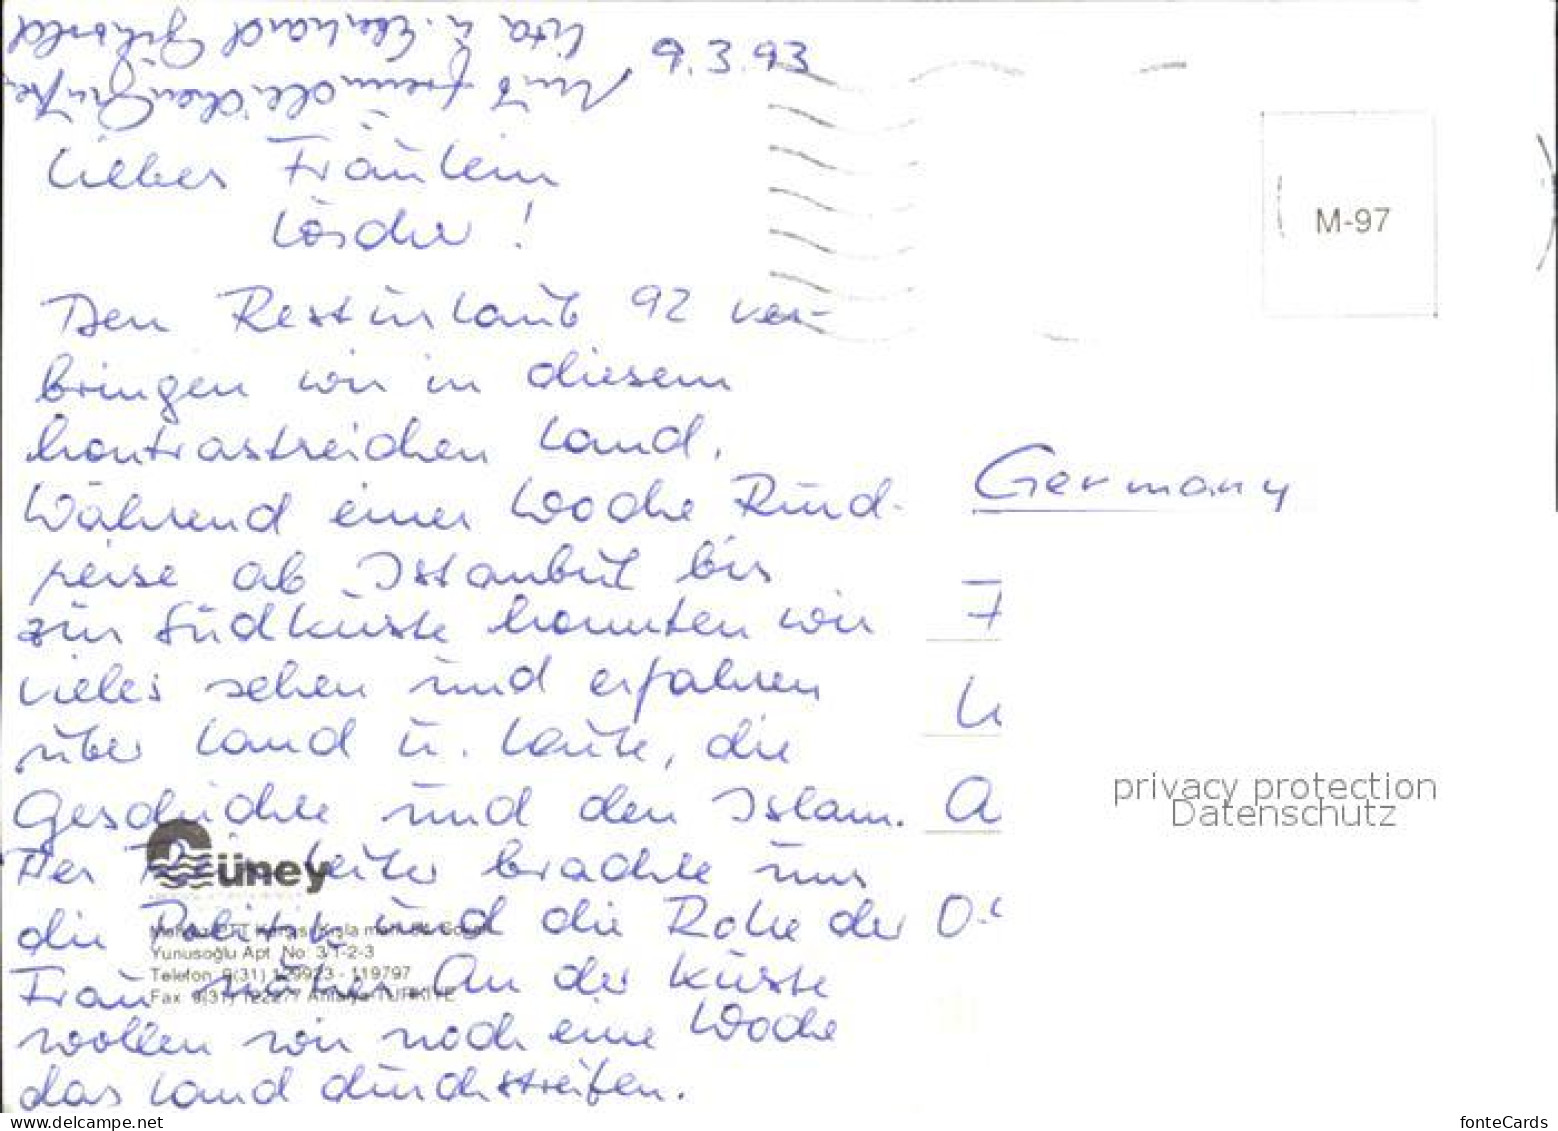 9.3.93
Liebes Fräulein
Löscher!
Den Resturlaub 92 ver-
bringen wir in diesem
kontrastreichen Land.
Während einer Woche Rund-
reise ab Istanbul bis
zur Südküste konnten wir
vieles sehen und erfahren
über Land u. Leute, die
Geschichte und den Islam.
Der Reiseleiter brachte uns
die Politik und die Rolle der
Frau näher. An der Küste
wollen wir noch eine Woche
das Land durchstreifen.
Mit freundlichen Grüßen
u. Eberhard
M-97
Germany
privacy protection
Datenschutz
Güney
Yunusoğlu Apt. No: 3/1-2-3
Telefon: 9(31) 129923 - 119797
Fax: 9(31) 122277 Antalya-TÜRKİYE
www.delcampe.net
fonteCards